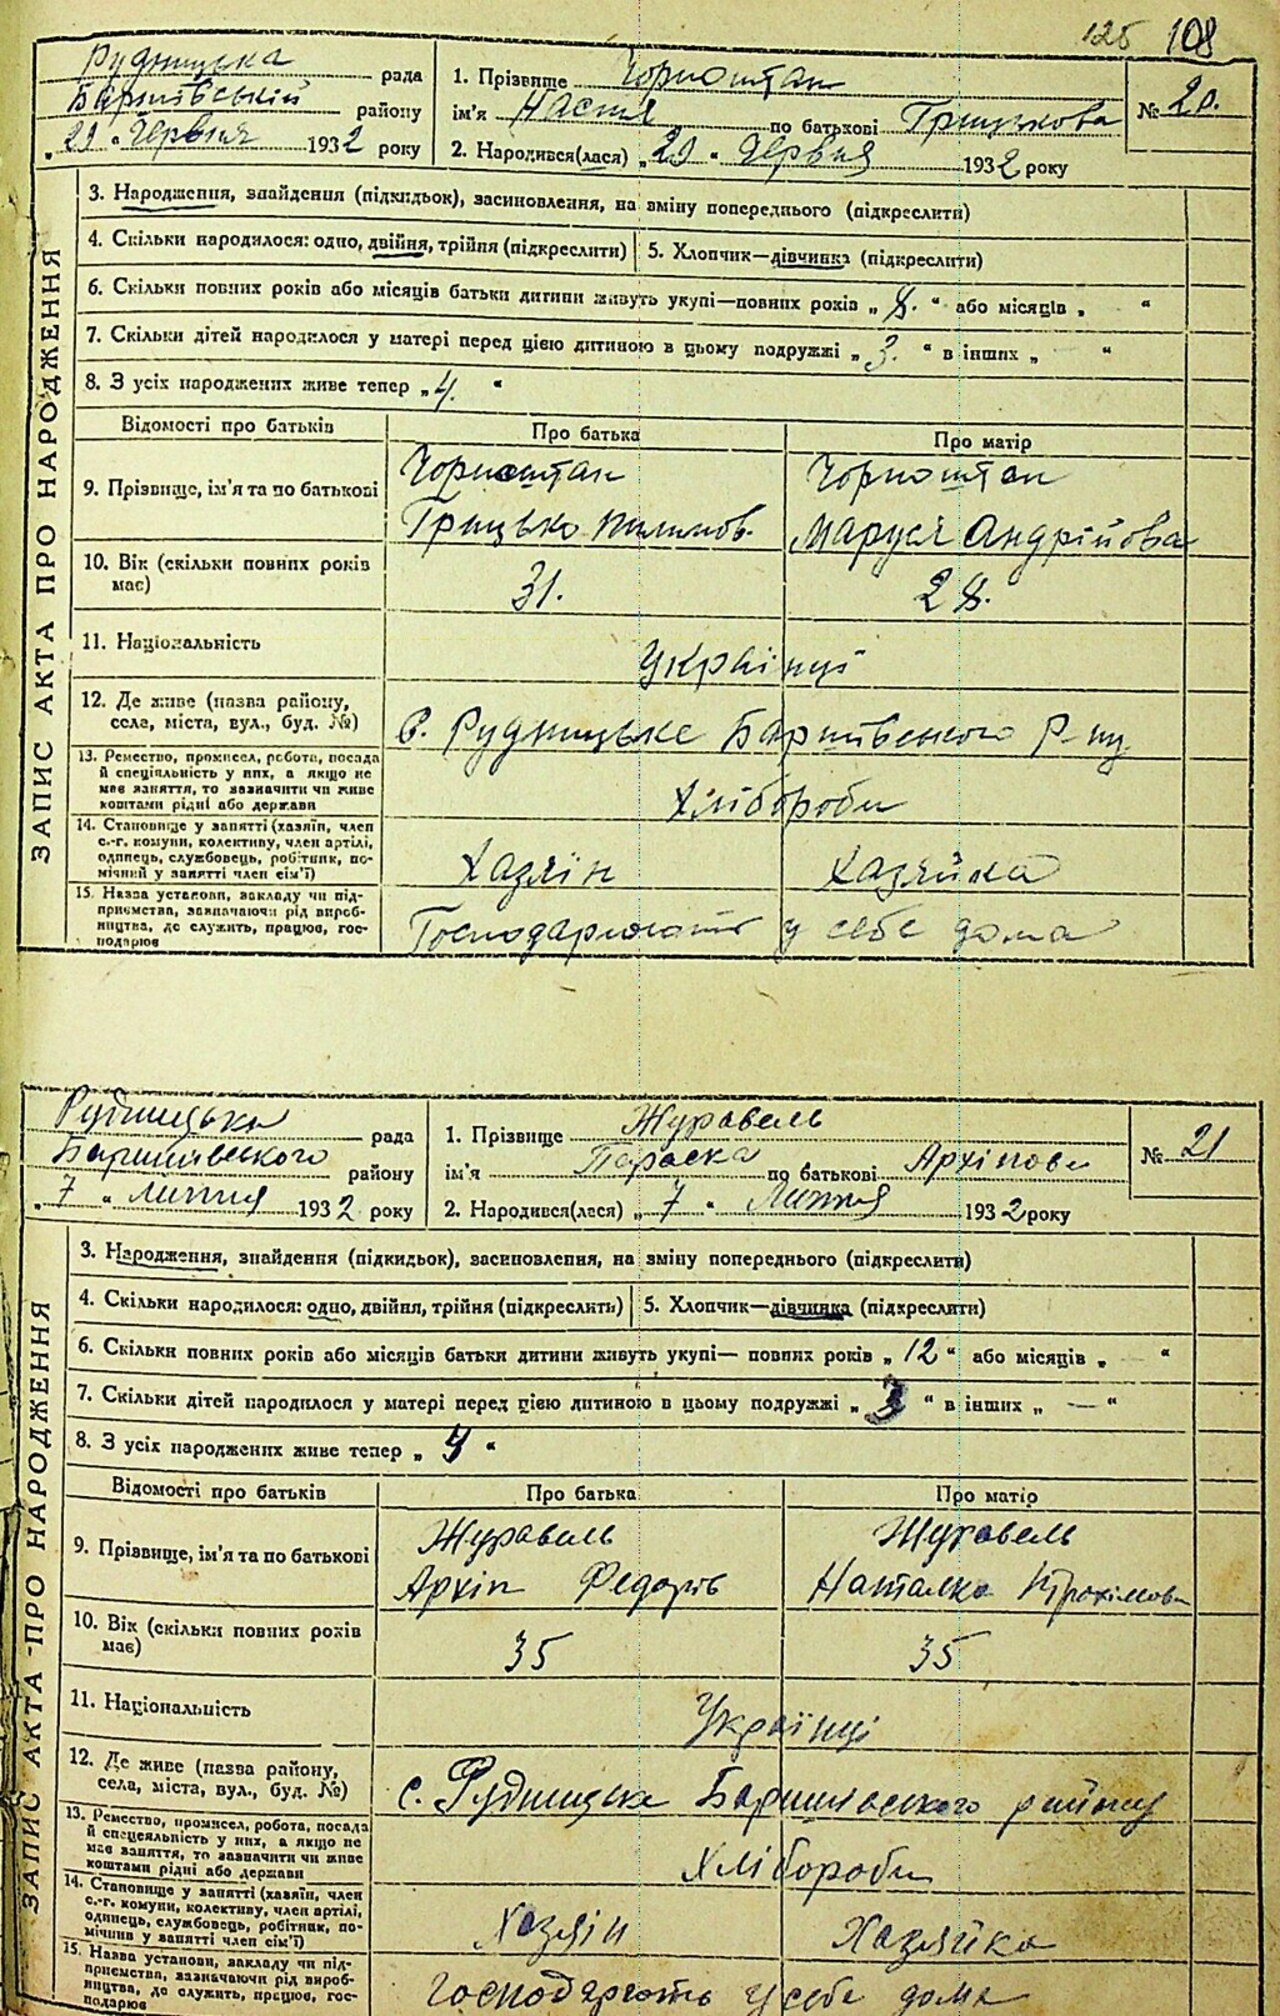 125 108
Рудницька рада
Баришівський району
„ 29 “ Червня 1932 року
1. Прізвище Чорноштан
ім'я Настя по батькові Грицькова
2. Народився(лася) „ 29 “ Червня 1932 року
№ 20.
ЗАПИС АКТА ПРО НАРОДЖЕННЯ
3. Народження, знайдення (підкидьок), засиновлення, на зміну попереднього (підкреслити)
4. Скільки народилося: одно, двійня, трійня (підкреслити) 5. Хлопчик—дівчинка (підкреслити)
6. Скільки повних років або місяців батьки дитини живуть укупі—повних років „ 8. “ або місяців „ “
7. Скільки дітей народилося у матері перед цією дитиною в цьому подружжі „ 3. “ в інших „ — “
8. З усіх народжених живе тепер „ 4. “
Відомості про батьків Про батька Про матір
9. Прізвище, ім'я та по батькові
Чорноштан Чорноштан
Грицько Пилипов. Маруся Андрійова
10. Вік (скільки повних років
має)
31. 28.
11. Національність
Українці
12. Де живе (назва району,
села, міста, вул., буд. №)
с. Рудницьке Баришівського р-ну
13. Ремество, промисел, робота, посада
й спеціяльність у них, а якщо не
має заняття, то зазначити чи живе
коштами рідні або держави
Хлібороби
14. Становище у занятті (хазяїн, член
с.-г. комуни, колективу, член артілі,
одинець, службовець, робітник, по-
мічний у занятті член сім'ї)
Хазяїн Хазяйка
15. Назва установи, закладу чи під-
приємства, зазначаючи рід вироб-
ництва, де служить, працює, гос-
подарює
Господарюють у себе дома
Рудницька рада
Баришівського району
„ 7 “ Липня 1932 року
1. Прізвище Журавель
ім'я Параска по батькові Архіпова
2. Народився(лася) „ 7 “ Липня 1932 року
№ 21
ЗАПИС АКТА ПРО НАРОДЖЕННЯ
3. Народження, знайдення (підкидьок), засиновлення, на зміну попереднього (підкреслити)
4. Скільки народилося: одно, двійня, трійня (підкреслить) 5. Хлопчик—дівчинка (підкреслити)
6. Скільки повних років або місяців батьки дитини живуть укупі— повних років „ 12 “ або місяців „ — “
7. Скільки дітей народилося у матері перед цією дитиною в цьому подружжі „ 3 “ в інших „ — “
8. З усіх народжених живе тепер „ 4 “
Відомості про батьків Про батька Про матір
9. Прізвище, ім'я та по батькові
Журавель Журавель
Архіп Федорів Наталка Трохімова
10. Вік (скільки повних років
має)
35 35
11. Національність
Українці
12. Де живе (назва району,
села, міста, вул., буд. №)
с. Рудницьке Баришівського району
13. Ремество, промисел, робота, посада
й спецеяльність у них, а якщо не
має заняття, то зазначити чи живе
коштами рідні або держави
Хлібороби
14. Становище у занятті (хазяїн, член
с.-г. комуни, колективу, член артілі,
одинець, службовець, робітник, по-
мічний у занятті член сім'ї)
Хазяїн Хазяйка
15. Назва установи, закладу чи під-
приємства, зазначаючи рід вироб-
ництва, де служить, працює, гос-
подарює
господарюють у себе дома